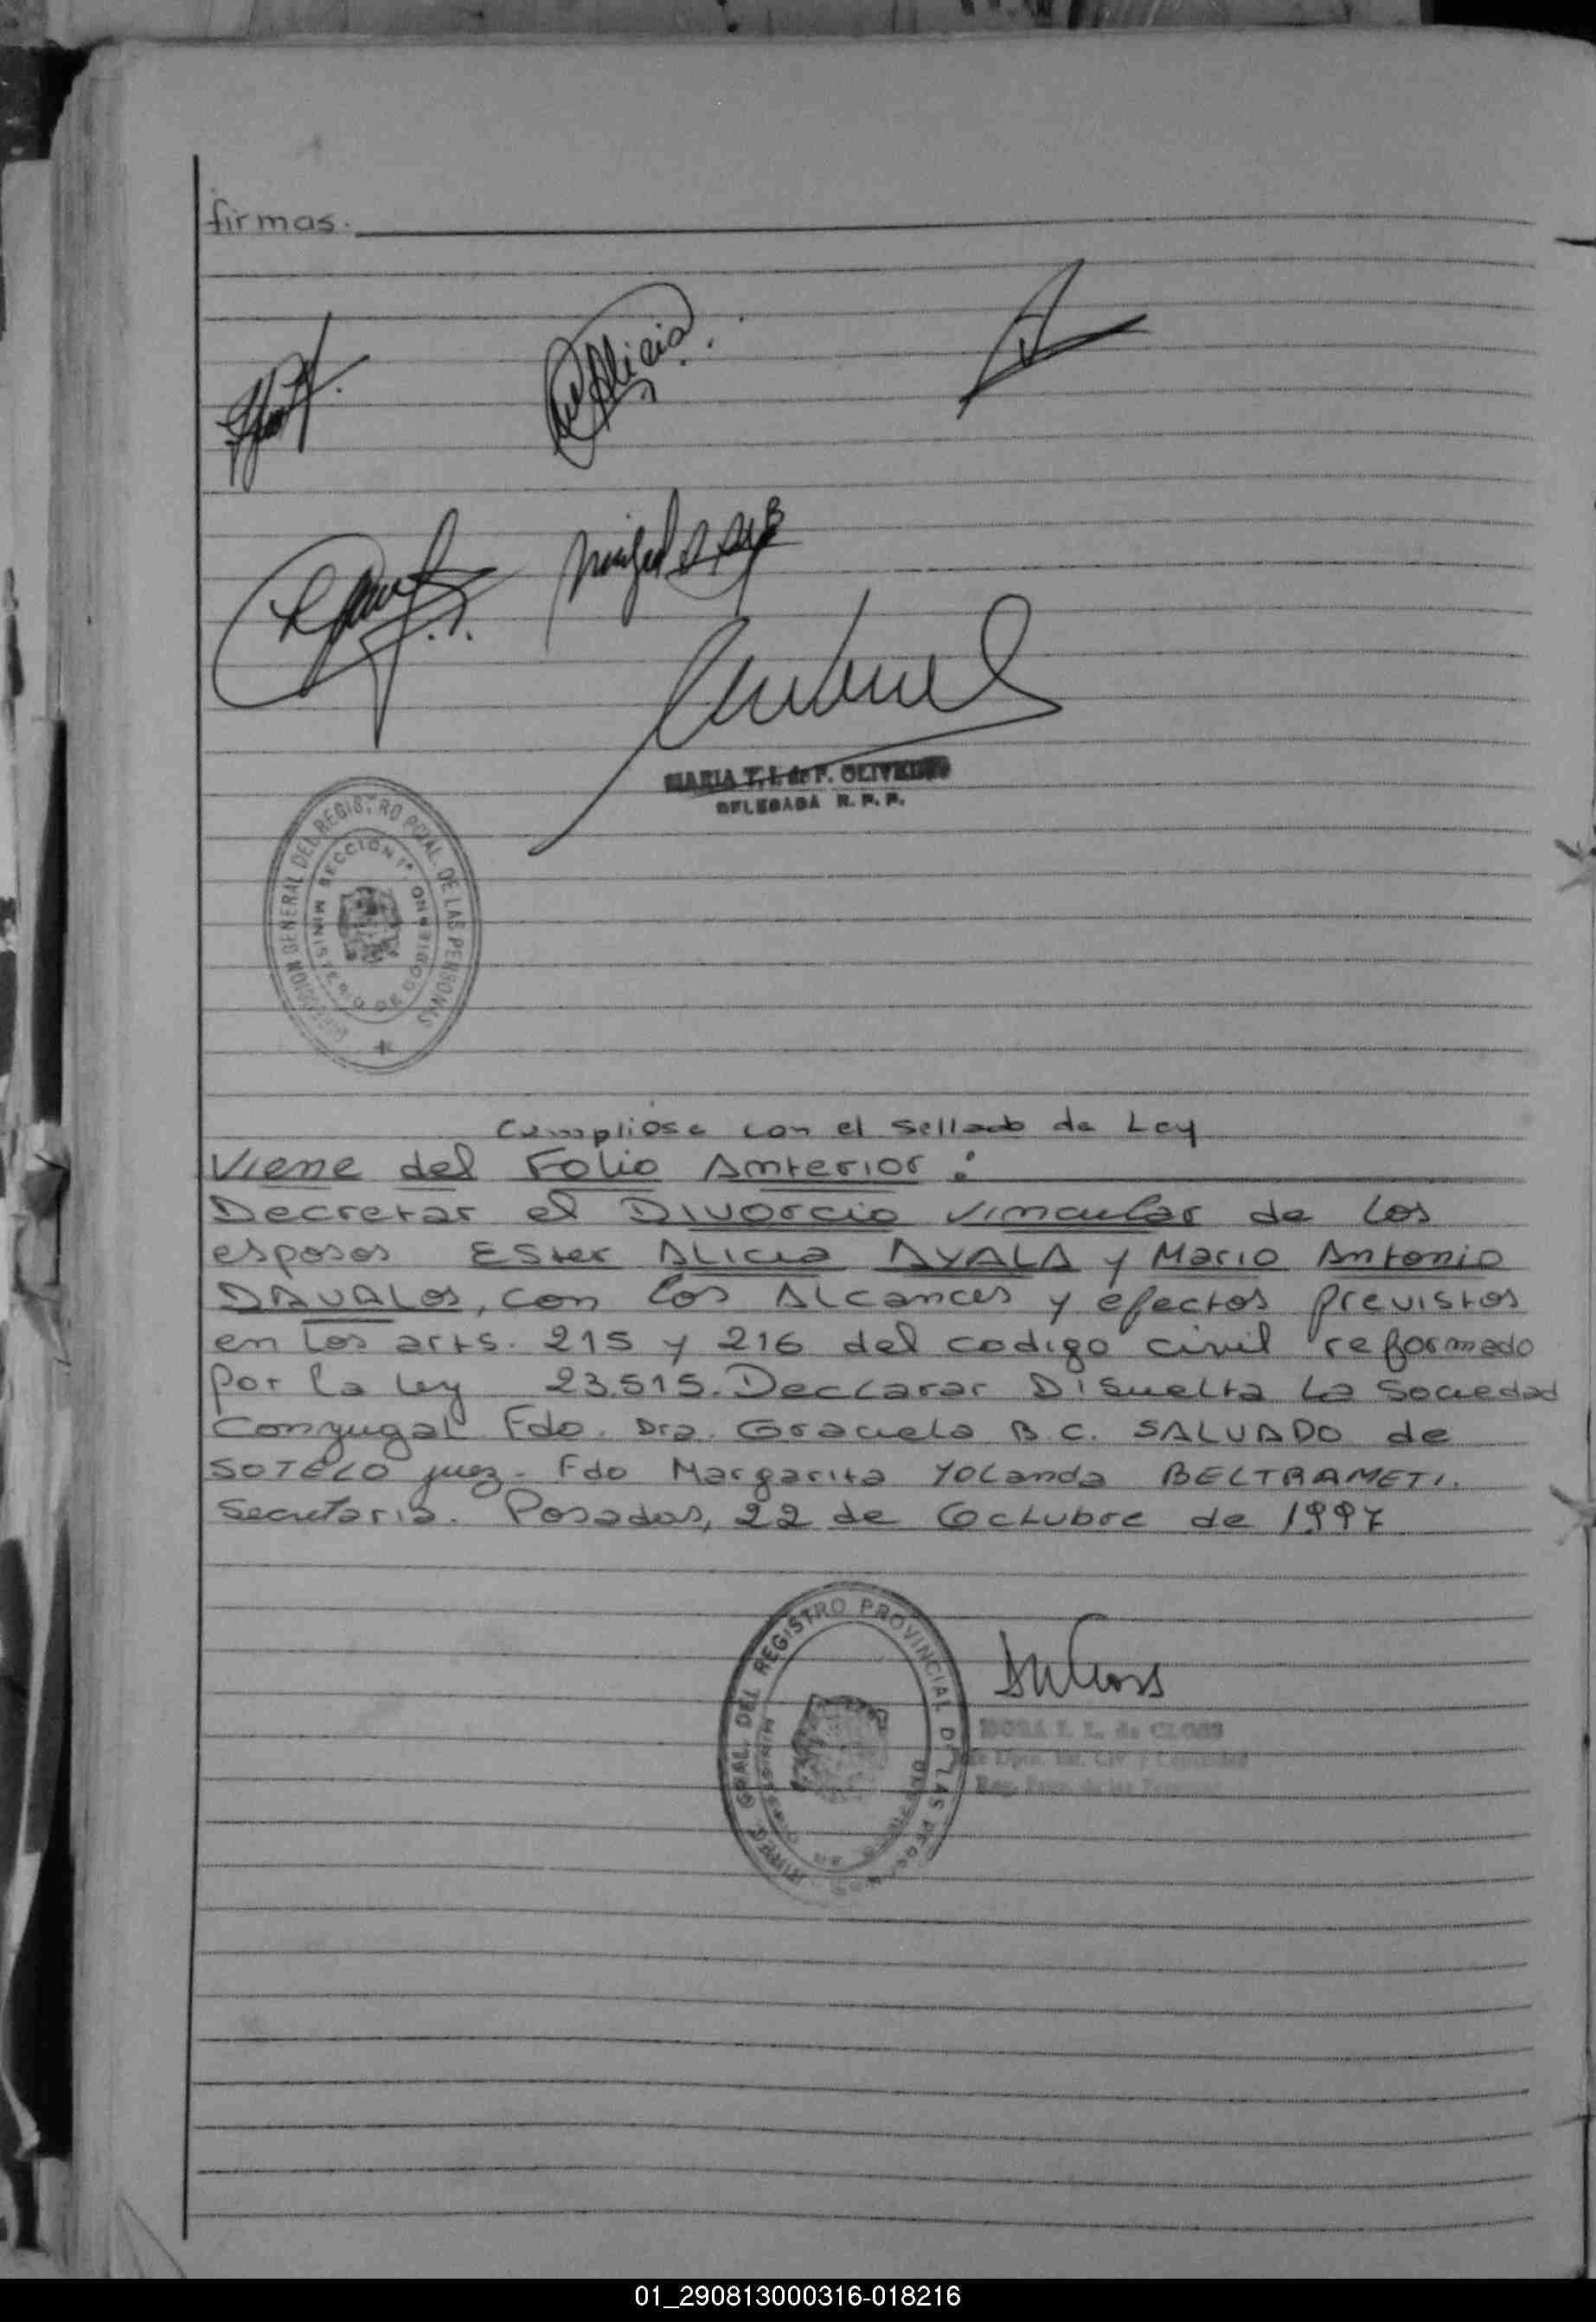 firmas.
Alicia
MARIA T. I. de F. OLIVEIRA
DELEGADA R. P. P.
DIRECCION GENERAL DEL REGISTRO PCIAL. DE LAS PERSONAS
SECCION 1ª
MINISTERIO DE GOBIERNO
Cumpliose con el sellado de Ley
Viene del Folio Anterior:
Decretar el Divorcio vincular de los
esposos Ester ALicia AYALA y Mario Antonio
DAVALOS, con los Alcances y efectos previstos
en los arts. 215 y 216 del codigo civil reformado
por la ley 23.515. Declarar Disuelta la Sociedad
Conyugal Fdo. Dra. Graciela B. C. SALVADO de
SOTELO juez. Fdo Margarita Yolanda BELTRAMETI.
Secretaria. Posadas, 22 de Octubre de 1997
DIREC. GRAL. DEL REGISTRO PROVINCIAL DE LAS PERSONAS
MINISTERIO DE GOBIERNO
I. L. de CLOSS
01_290813000316-018216